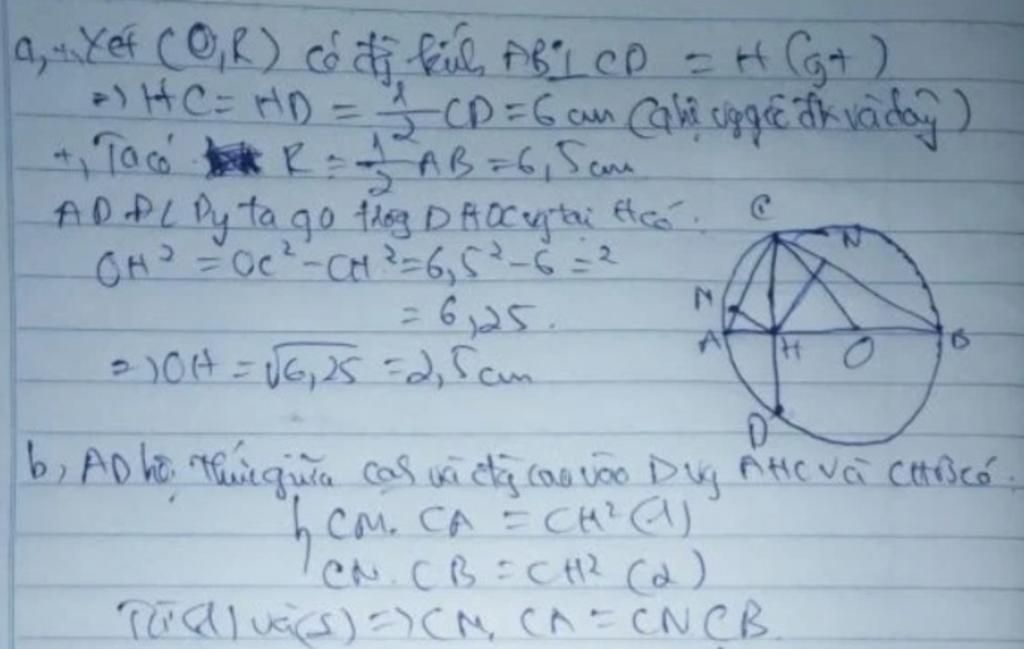 a, +, Xét (O,R) có đg kính AB ⊥ CD = H (gt)
=) HC = HD = 1/2 CD = 6 cm (qhệ vg góc đk và dây)
+, Ta có R = 1/2 AB = 6,5 cm
AD ĐL Py ta go trog Δ HOC vg tại H có:
OH² = OC² - CH² = 6,5² - 6 = ²
= 6,25.
=) OH = √6,25 = 2,5 cm
C
N
M
A
H
O
B
D
b, AD hệ thức giữa cạh và đg cao vào Δ vg AHC và CHB có:
CM. CA = CH² (1)
CN. CB = CH² (2)
Từ (1) và (2) =) CM. CA = CN CB.